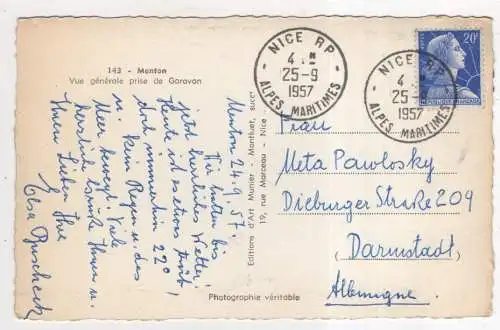 143 - Menton
Vue générale prise de Garavan
Menton 24.9.57.
Wir hatten bis
jetzt herrliches Wetter!
Heute ist es etwas trüb!
doch immerhin 22°
u. kein Regen u. das
Meer bewegt. Viele
herzliche Grüße Ihnen u.
Ihren Lieben Ihre
Elsa
Editions d'Art Munier - Monthuet, succr
19, rue Marceau - Nice
Photographie véritable
NICE RP
4
25-9
1957
ALPES MARITIMES
NICE RP
4
25
1957
ALPES MARITIMES
20F
Frau
Meta Pawlosky
Dieburger Straße 209
Darmstadt
Allemagne.